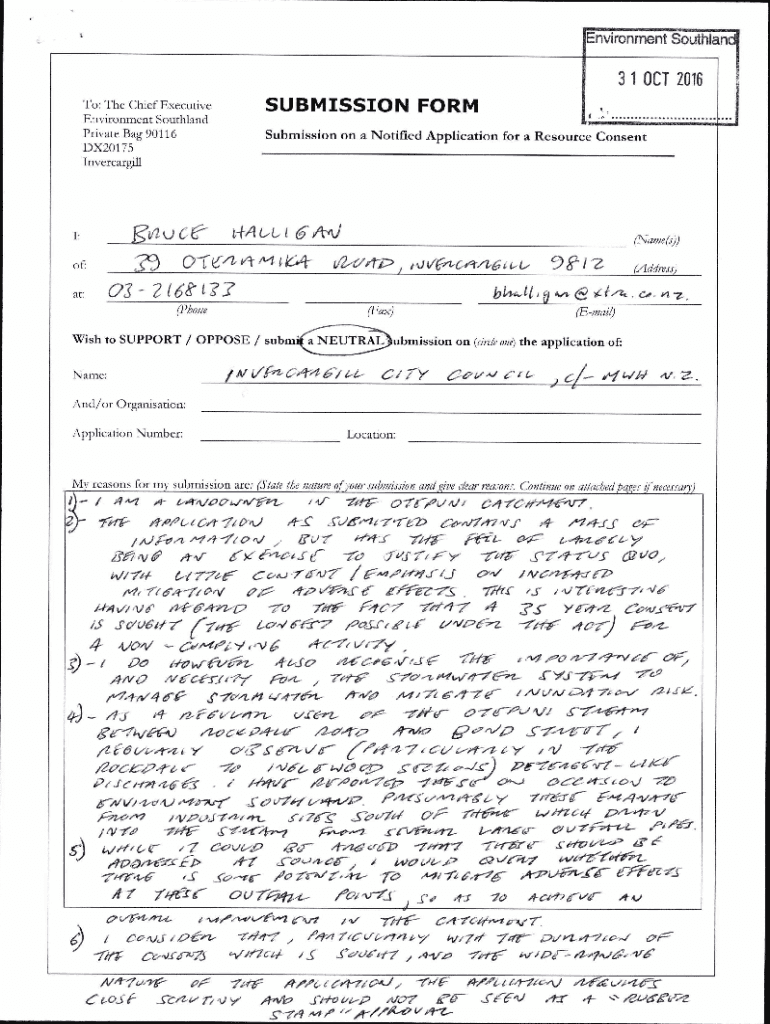 Environment Southland
31 OCT 2016
To: The Chief Executive
Environment Southland
Private Bag 90116
DX20175
Invercargill
SUBMISSION FORM
Submission on a Notified Application for a Resource Consent
I: BRUCE HALLIGAN (Name(s))
of: 39 OTERAMIKA ROAD, INVERCARGILL 9812 (Address)
at: 03-2168133 bhalligan@xtra.co.nz.
(Phone (Fax) (E-mail)
Wish to SUPPORT / OPPOSE / submit a NEUTRAL submission on (circle one) the application of:
Name: INVERCARGILL CITY COUNCIL, c/- MWH N.Z.
And/or Organisation:
Application Number: Location:
My reasons for my submission are: (State the nature of your submission and give clear reasons. Continue on attached pages if necessary)
1)- I AM A LANDOWNER IN THE OTEPUNI CATCHMENT.
2)- THE APPLICATION AS SUBMITTED CONTAINS A MASS OF
INFORMATION, BUT HAS THE FEEL OF LARGELY
BEING AN EXERCISE TO JUSTIFY THE STATUS QUO,
WITH LITTLE CONTENT / EMPHASIS ON INCREASED
MITIGATION OF ADVERSE EFFECTS. THIS IS INTERESTING
HAVING REGARD TO THE FACT THAT A 35 YEAR CONSENT
IS SOUGHT (THE LONGEST POSSIBLE UNDER THE ACT) FOR
A NON-COMPLYING ACTIVITY.
3)- I DO HOWEVER ALSO RECOGNISE THE IMPORTANCE OF,
AND NECESSITY FOR, THE STORMWATER SYSTEM TO
MANAGE STORMWATER AND MITIGATE INUNDATION RISK.
4)- AS A REGULAR USER OF THE OTEPUNI STREAM
BETWEEN ROCKDALE ROAD AND BOND STREET, I
REGULARLY OBSERVE (PARTICULARLY IN THE
ROCKDALE TO INGLEWOOD SECTIONS) DETERGENT-LIKE
DISCHARGES. I HAVE REPORTED THESE ON OCCASION TO
ENVIRONMENT SOUTHLAND. PRESUMABLY THESE EMANATE
FROM INDUSTRIAL SITES SOUTH OF THERE WHICH DRAIN
INTO THE STREAM FROM SEVERAL LARGE OUTFALL PIPES.
5) WHILE IT COULD BE ARGUED THAT THESE SHOULD BE
ADDRESSED AT SOURCE, I WOULD QUERY WHETHER
THERE IS SOME POTENTIAL TO MITIGATE ADVERSE EFFECTS
AT THESE OUTFALL POINTS, SO AS TO ACHIEVE AN
OVERALL IMPROVEMENT IN THE CATCHMENT.
6) I CONSIDER THAT, PARTICULARLY WITH THE DURATION OF
THE CONSENTS WHICH IS SOUGHT, AND THE WIDE-RANGING
NATURE OF THE APPLICATION, THE APPLICATION REQUIRES
CLOSE SCRUTINY AND SHOULD NOT BE SEEN AS A "RUBBER
STAMP" APPROVAL